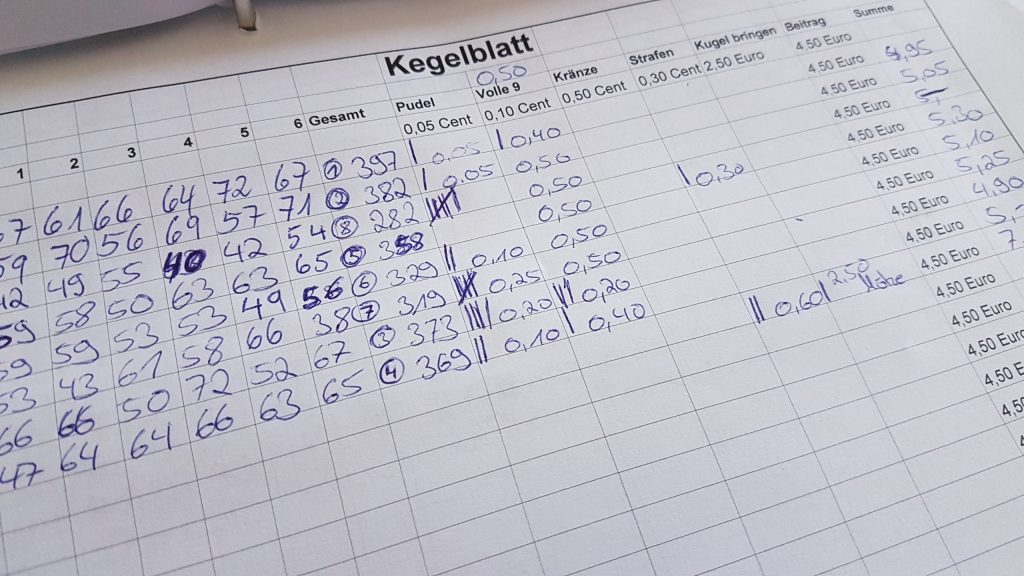 Kegelblatt
1 2 3 4 5 6 Gesamt Pudel Volle 9 Kränze Strafen Kugel bringen Beitrag Summe
0,50
0,05 Cent 0,10 Cent 0,50 Cent 0,30 Cent 2,50 Euro 4,50 Euro
61 66 64 72 67 1 397 | 0,05 | 0,40 4,50 Euro 4,95
59 70 56 69 57 71 2 382 | 0,05 0,50 4,50 Euro 5,05
42 49 55 40 42 54 8 282 0,50 4,50 Euro
59 58 50 63 63 65 5 358 0,50 | 0,30 4,50 Euro 5,30
59 59 53 53 49 56 6 329 || 0,10 0,50 4,50 Euro 5,10
53 43 61 58 66 38 7 319 0,25 0,50 4,50 Euro 5,25
66 66 50 72 52 67 3 373 |||| 0,20 || 0,20 4,50 Euro 4,90
47 64 64 66 63 65 4 369 || 0,10 | 0,40 || 0,60 | 2,50 4,50 Euro
4,50 Euro
4,50 Euro
4,50 Euro